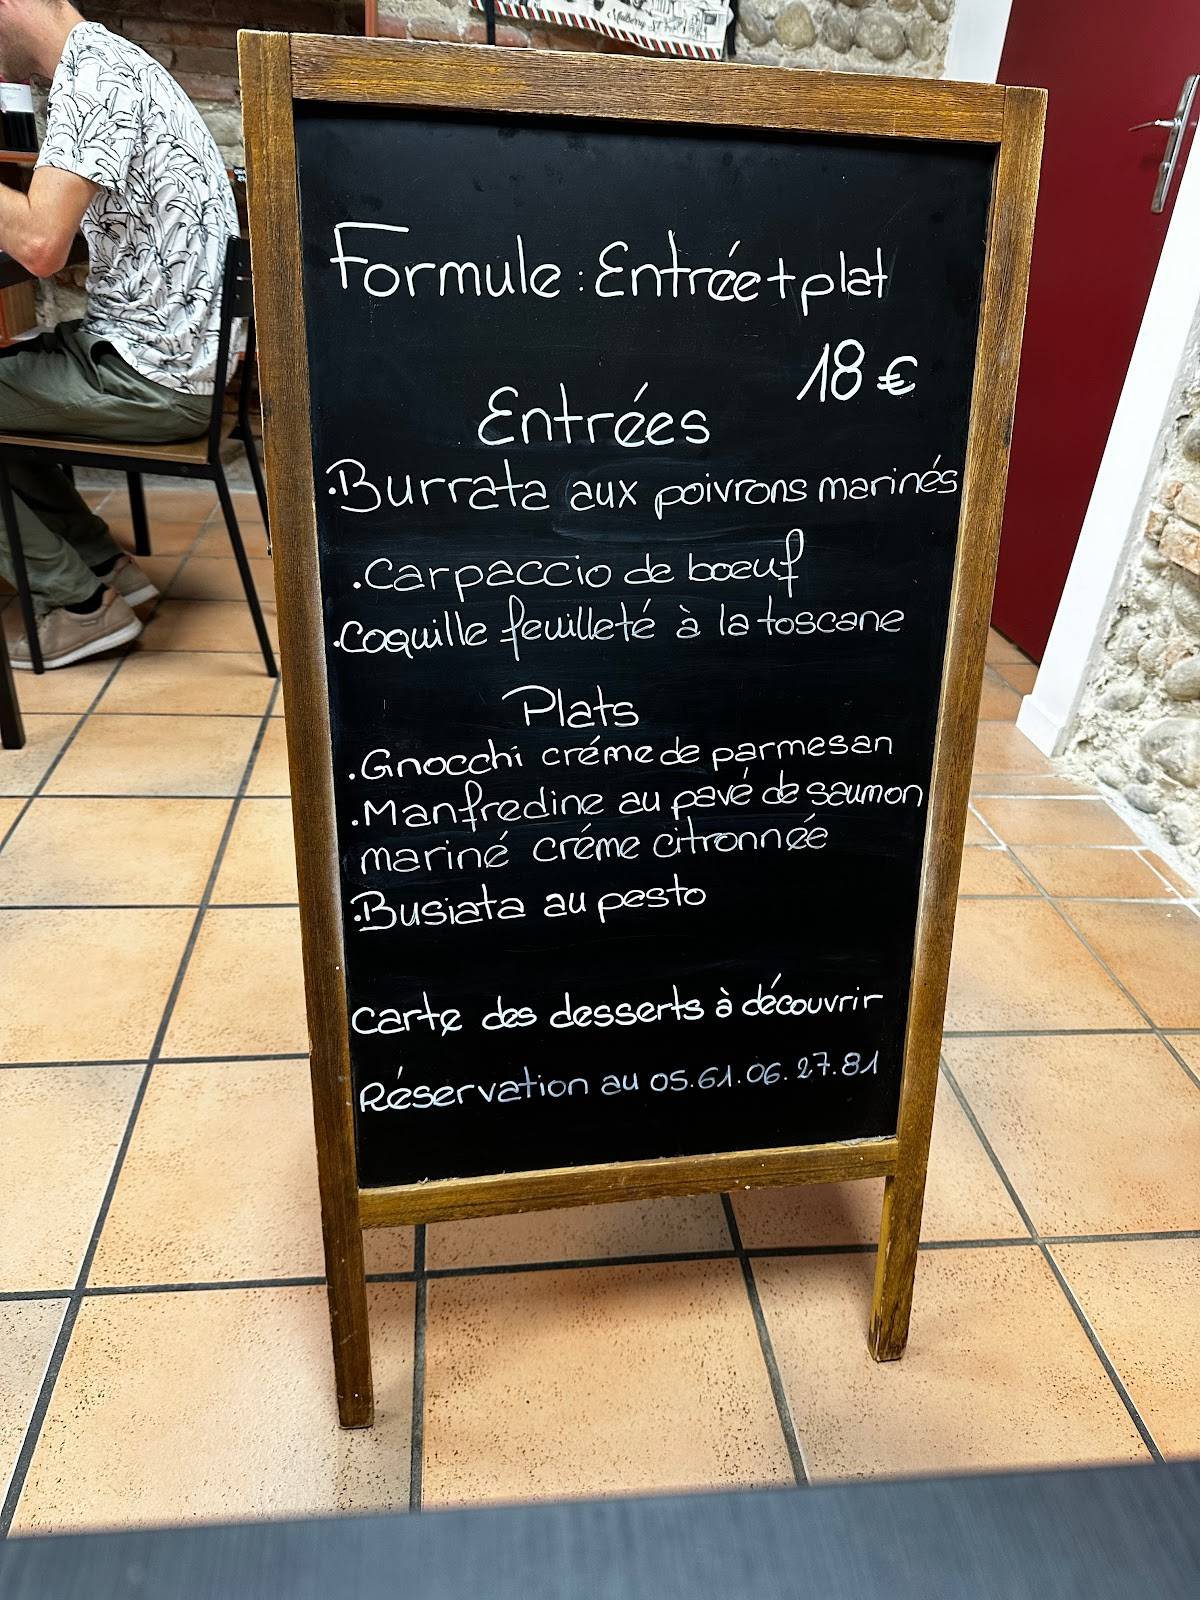 Formule : Entrée + plat
18 €
Entrées
.Burrata aux poivrons marinés
.Carpaccio de boeuf
.Coquille feuilleté à la toscane
Plats
.Gnocchi créme de parmesan
.Manfredine au pavé de saumon
mariné créme citronnée
.Busiata au pesto
Carte des desserts à découvrir
Réservation au 05.61.06.27.81